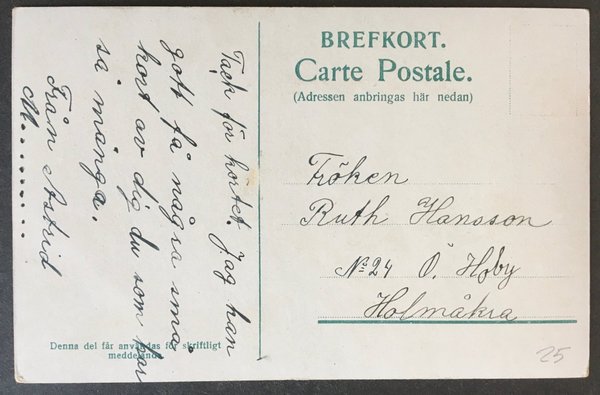 BREFKORT.
Carte Postale.
(Adressen anbringas här nedan)
Tack för kortet. Jag kan
gott få några små
kort av dig du som har
så många.
Från Astrid
M........
Fröken
Ruth Hansson
No 24 Ö. Hoby
Holmåkra
Denna del får användas för skriftligt
meddelande
25